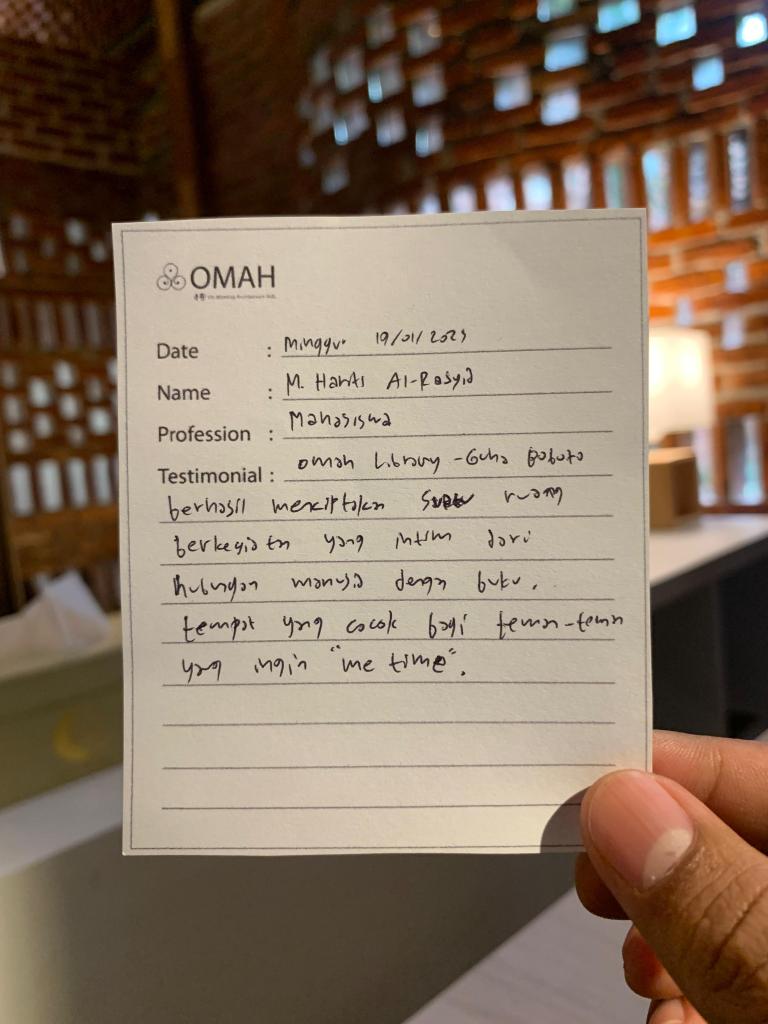 OMAH
Date : Minggu. 19/01/2025
Name : M. Harits Al-Rasyid
Profession : Mahasiswa
Testimonial : Omah Library - Guha Boboto
berhasil menciptakan ruang
berkegiatan yang intim dari
hubungan manusia dengan buku.
tempat yang cocok bagi teman-teman
yang ingin "me time".